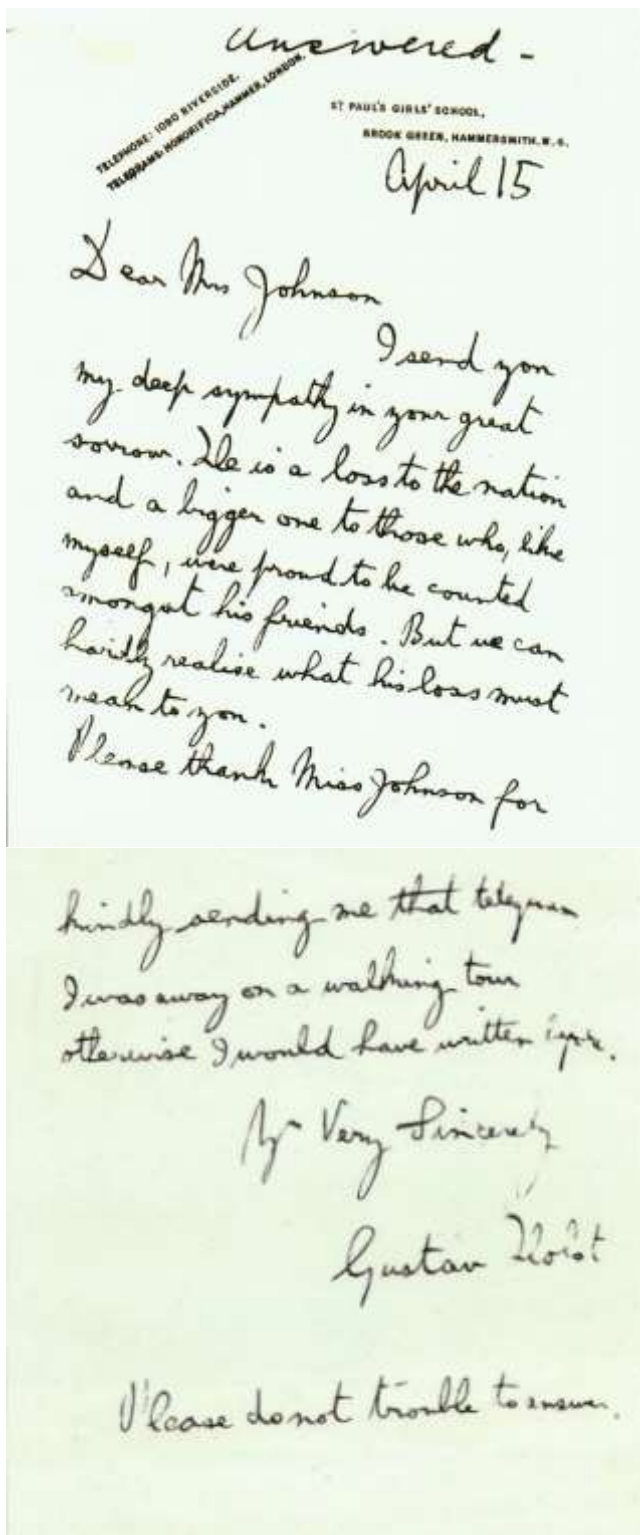 answered -
TELEPHONE: 1080 RIVERSIDE.
TELEGRAMS: HONORIFICA, HAMMER, LONDON.
ST PAUL'S GIRLS' SCHOOL,
BROOK GREEN, HAMMERSMITH, W. 6.
April 15
Dear Mrs Johnson
I send you
my deep sympathy in your great
sorrow. He is a loss to the nation
and a bigger one to those who, like
myself, were proud to be counted
amongst his friends. But we can
hardly realise what his loss must
mean to you.
Please thank Miss Johnson for
kindly sending me that telegram
I was away on a walking tour
otherwise I would have written
Yrs Very Sincerely
Gustav Holst
Please do not trouble to answer.